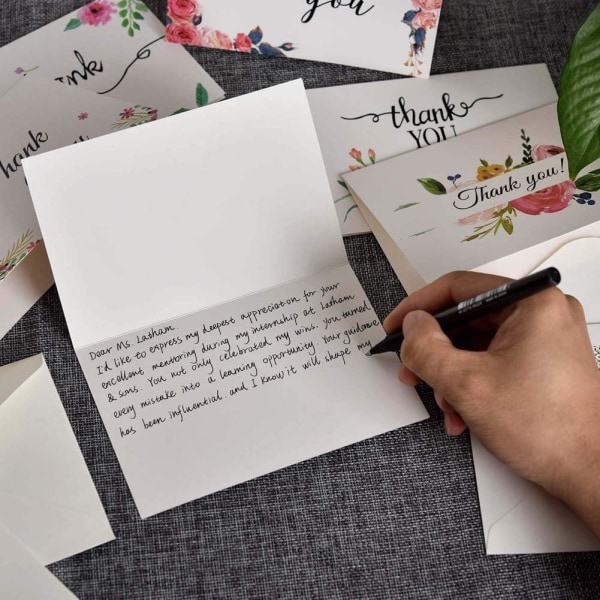 you
thank
hank
thank
YOU
Thank you!
Dear Ms. Latham.
I'd like to express my deepest appreciation for your
excellent mentoring during my internship at Latham
& sons. You not only celebrated my wins. You turned
every mistake into a learning opportunity. Your guidance
has been influential. and I know it will shape my